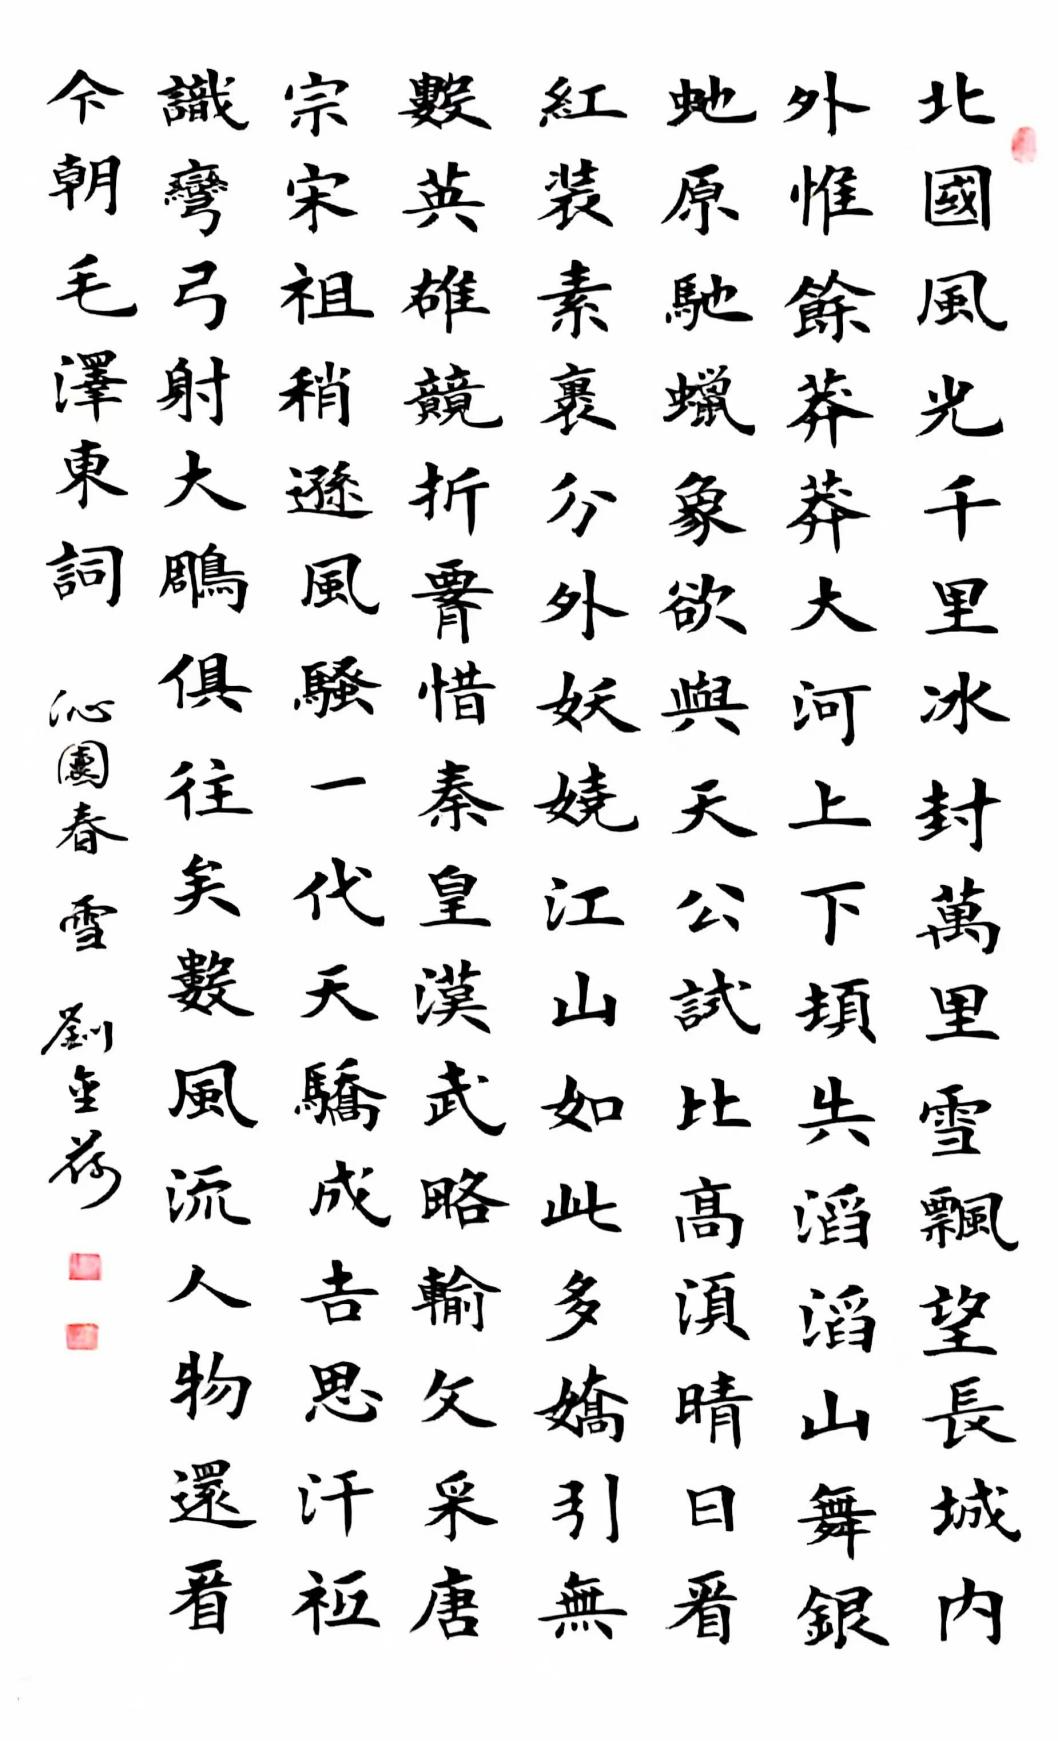 北國風光千里冰封萬里雪飄望長城内
外惟餘莽莽大河上下頓失滔滔山舞銀
虵原馳蠟象欲與天公試比高須晴日看
紅装素裹分外妖嬈江山如此多嬌引無
數英雄競折腰惜秦皇漢武略輸文采唐
宗宋祖稍遜風騷一代天驕成吉思汗衹
識彎弓射大鵰俱往矣數風流人物還看
今朝毛澤東詞 沁園春 雪 劉金荷